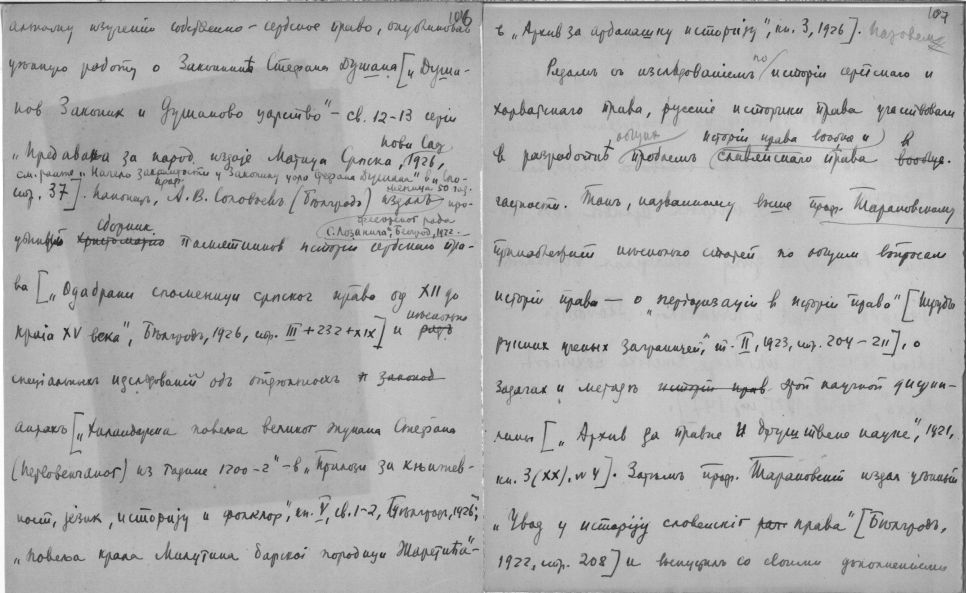 106
альному изученію собственно-сербское право, опубликовавъ
цѣнную работу о Законникѣ Стефана Душана [„Душа-
нов Законик и Душаново царство" – св. 12-13 серіи
Нови Сад
„Предавања за народ. издаје Матица Српска, 1926,
см. ранѣе „Начело законитости у Законику цара Стефана Душана" в „Спо-
меница 50 год.
стр. 37]. Наконецъ, А. В. Соловьевъ (Бѣлградъ) издалъ
професорског рада
С. Лозанића", Београд, 1922.
цѣнный сборник памятников исторіи сербскаго пра-
ва [„Одабрани споменици српског права од XII до
краја XV века", Бѣлградъ, 1926, стр. III + 232 + XIX] и нѣсколько
спеціальныхъ изслѣдованій объ отдѣльныхъ
[„Хиландарска повеља великог жупана Стефана
(Первовенчаног) из године 1200-2" – в „Прилози за књижев-
ност, језик, историју и фолклор", кн. V, св. 1-2, Бѣлградъ, 1926;
„Повеља краља Милутина барској породици Жаретића" –
107
в „Архив за арбанашку историју", кн. 3, 1926].
Рядомъ съ изслѣдованіемъ по исторіи сербскаго и
хорватскаго права, русскіе историки права участвовали
общих исторіи права вообще и в
в разработкѣ проблемъ славянскаго права вообще.
частности. Такъ, названному выше проф. Тарановскому
принадлежит нѣсколько статей по общим вопросам
исторіи права – о „періодизаціи в исторіи права" [„Труды
русских ученых заграницей", т. II, 1923, стр. 204-211], о
задачах и методѣ исторіи прав этой научной дисцип-
лины [„Архив за правне и друштвене науке", 1921,
кн. 3 (XX), № 4]. Затѣмъ проф. Тарановскій издал цѣнный
„Увод у историју словенског права" [Бѣлградъ,
1922, стр. 208] и выпустилъ со своими дополненіями